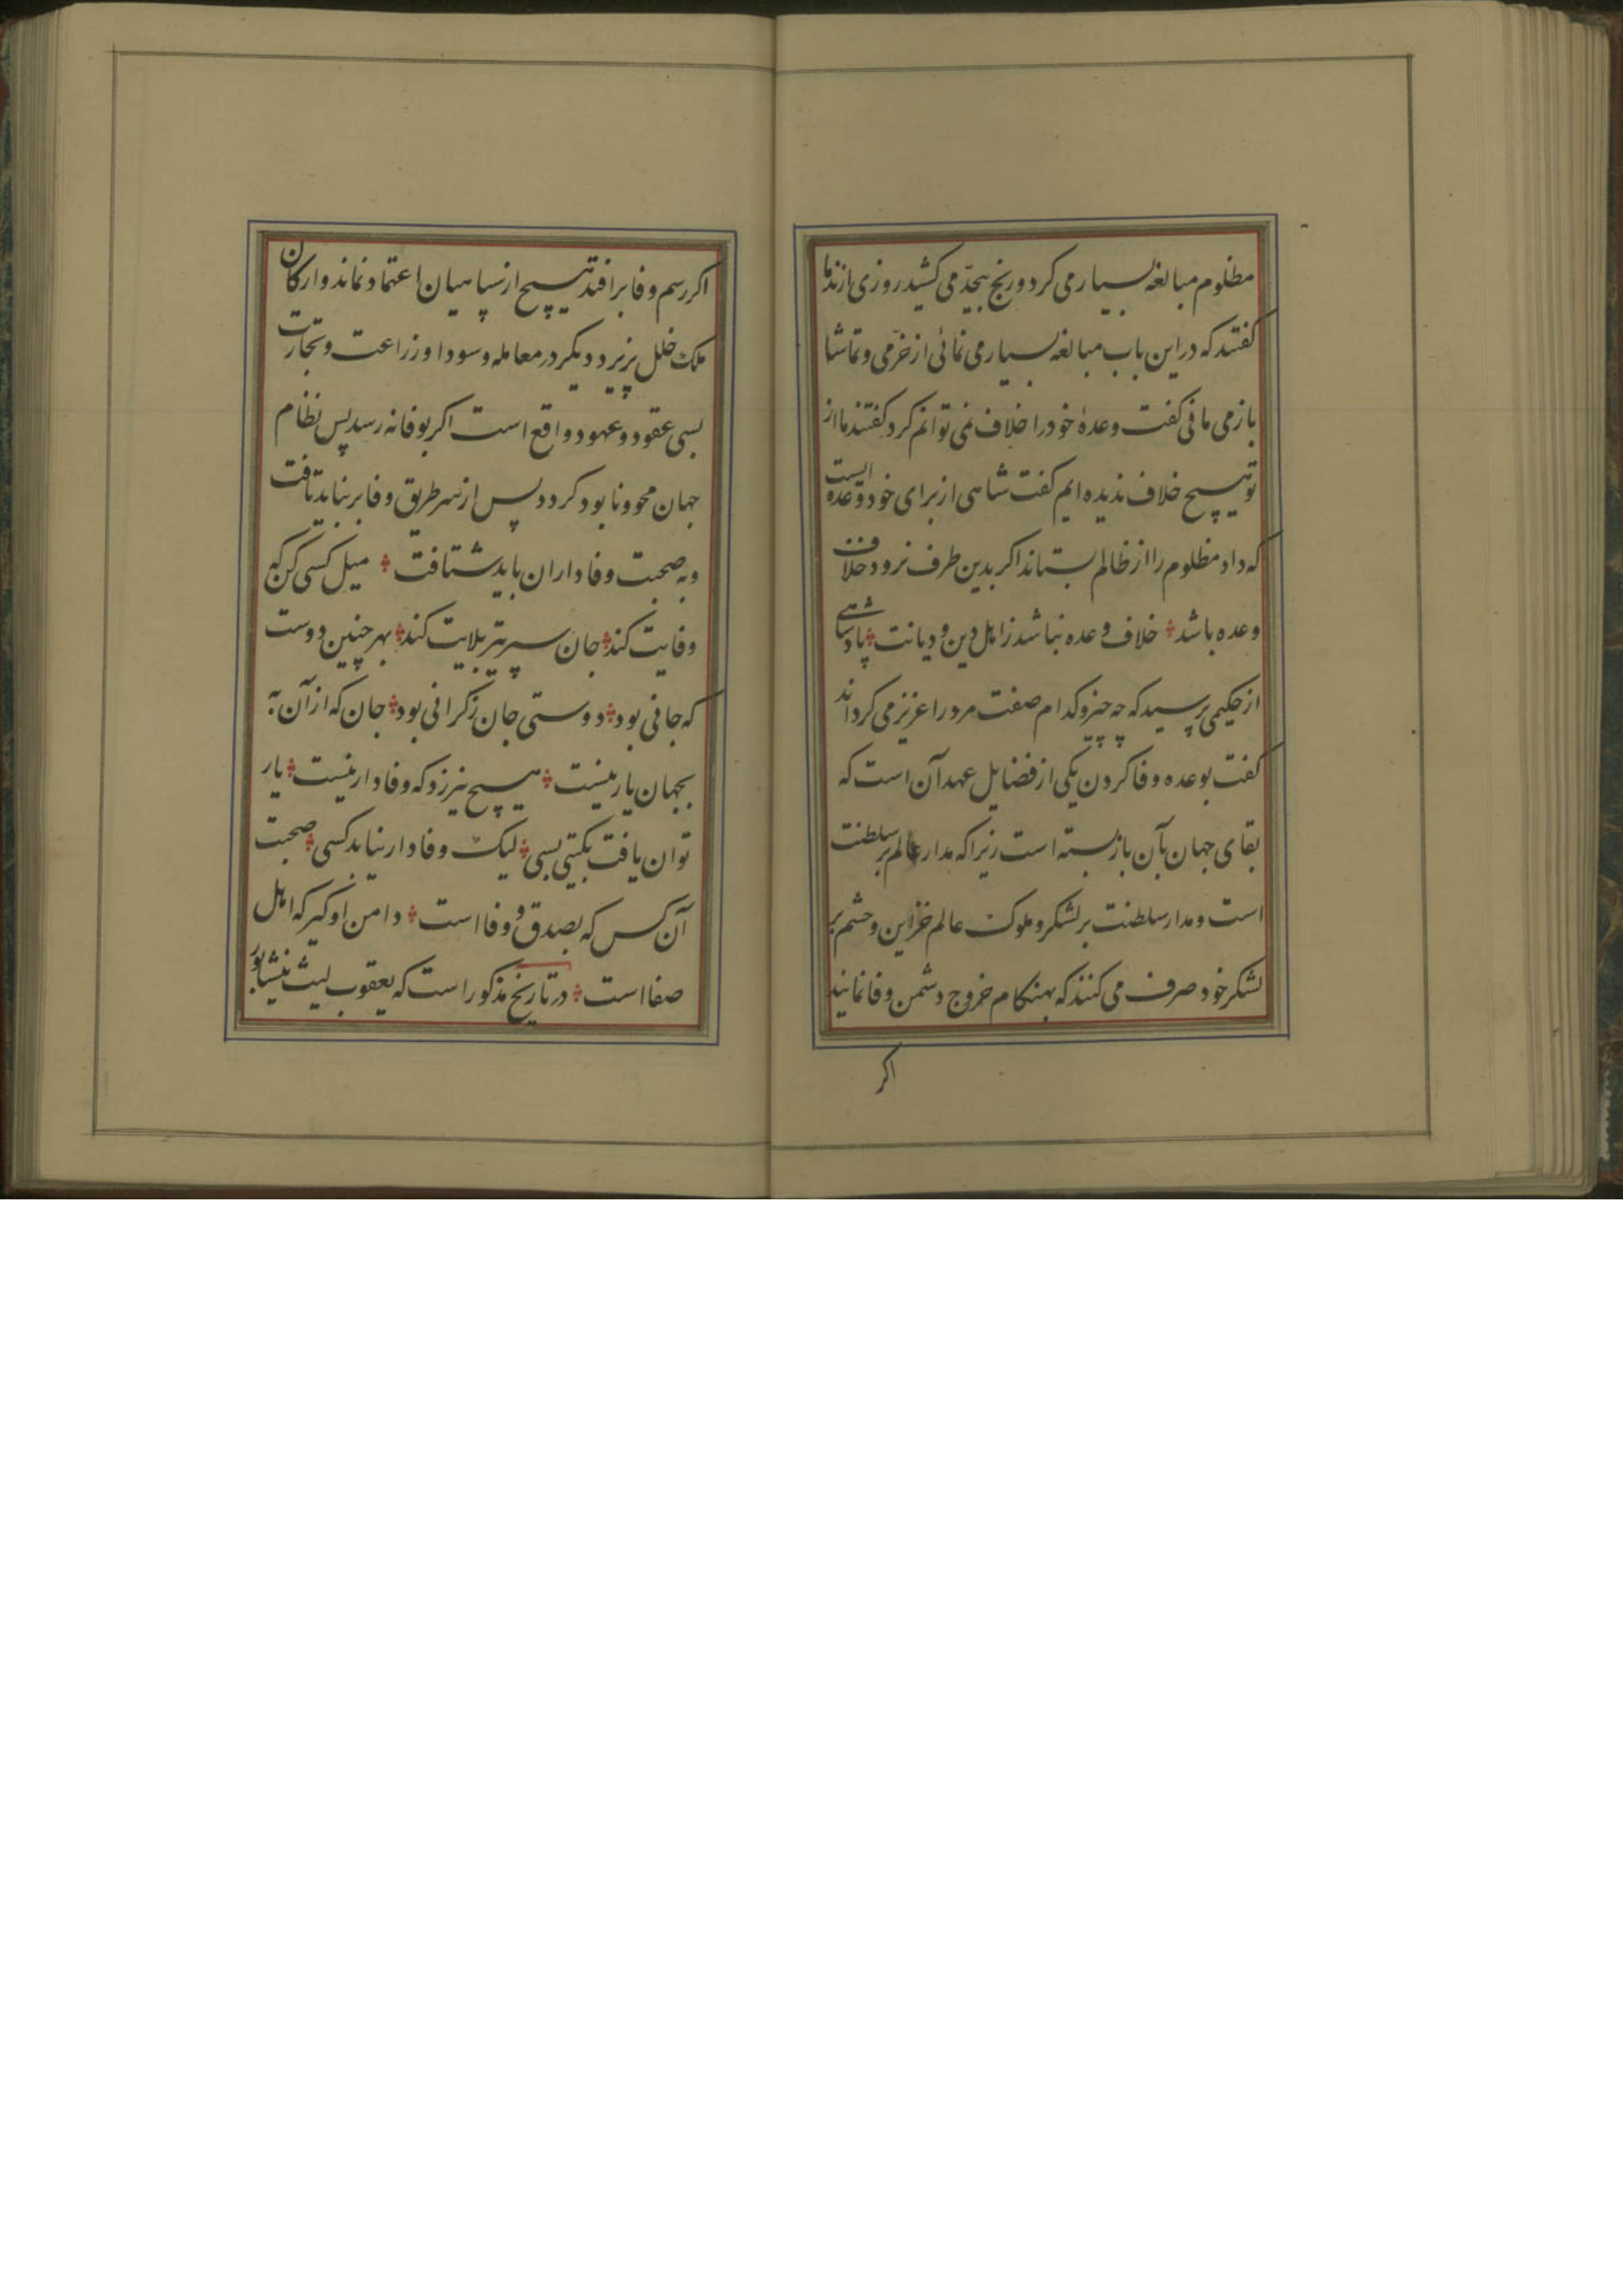 مظلوم مبالغه بسیار می کرد و رنج بیحدّ می کشید روزی از ندما
گفتند که در این باب مبالغه بسیار می نمائی از خرّمی و تماشا
باز می مانی گفت وعدهٔ خود را خلاف نمی توانم کرد گفتند ما از
تو هیچ خلاف ندیده ایم گفت شاهی از برای خود وعده ایست
که داد مظلوم را از ظالم بستاند اگر بدین طرف نرود خلاف
وعده باشد خلاف وعده نباشد ز اهل دین و دیانت پادشاهی
از حکیمی پرسید که چه چیز و کدام صفت مرد را عزیز می گرداند
گفت بوعده وفا کردن یکی از فضایل عهد آن است که
بقای جهان بآن بازبسته است زیرا که مدار عالم بر سلطنت
است و مدار سلطنت بر لشکر و ملوک عالم خزاین و حشم بر
لشکر خود صرف می کنند که بهنگام خروج دشمن وفا نمایند
اگر
اگر رسم وفا برافتد هیچ از سپاهیان اعتماد نماند و ارکان
ملک خلل پزیرد دیگر در معامله و سودا و زراعت و تجارت
بسی عقود و عهود واقع است اگر بوفا نه رسد پس نظام
جهان محو و نابود گردد پس از سر طریق وفا بر نباید تافت
و به صحبت وفاداران باید شتافت میل کسی کن که
وفایت کند جان سپر تیر بلایت کند بهر چنین دوست
که جانی بود دوستی جان ز گرانی بود جان که از آن به
بجهان یار نیست هیچ نیرزد که وفادار نیست یار
توان یافت بگیتی بسی لیک وفادار نیابد کسی صحبت
آن کس که بصدق و وفا است دامن او گیر که اهل
صفا است در تاریخ مذکور است که یعقوب لیث نیشابور